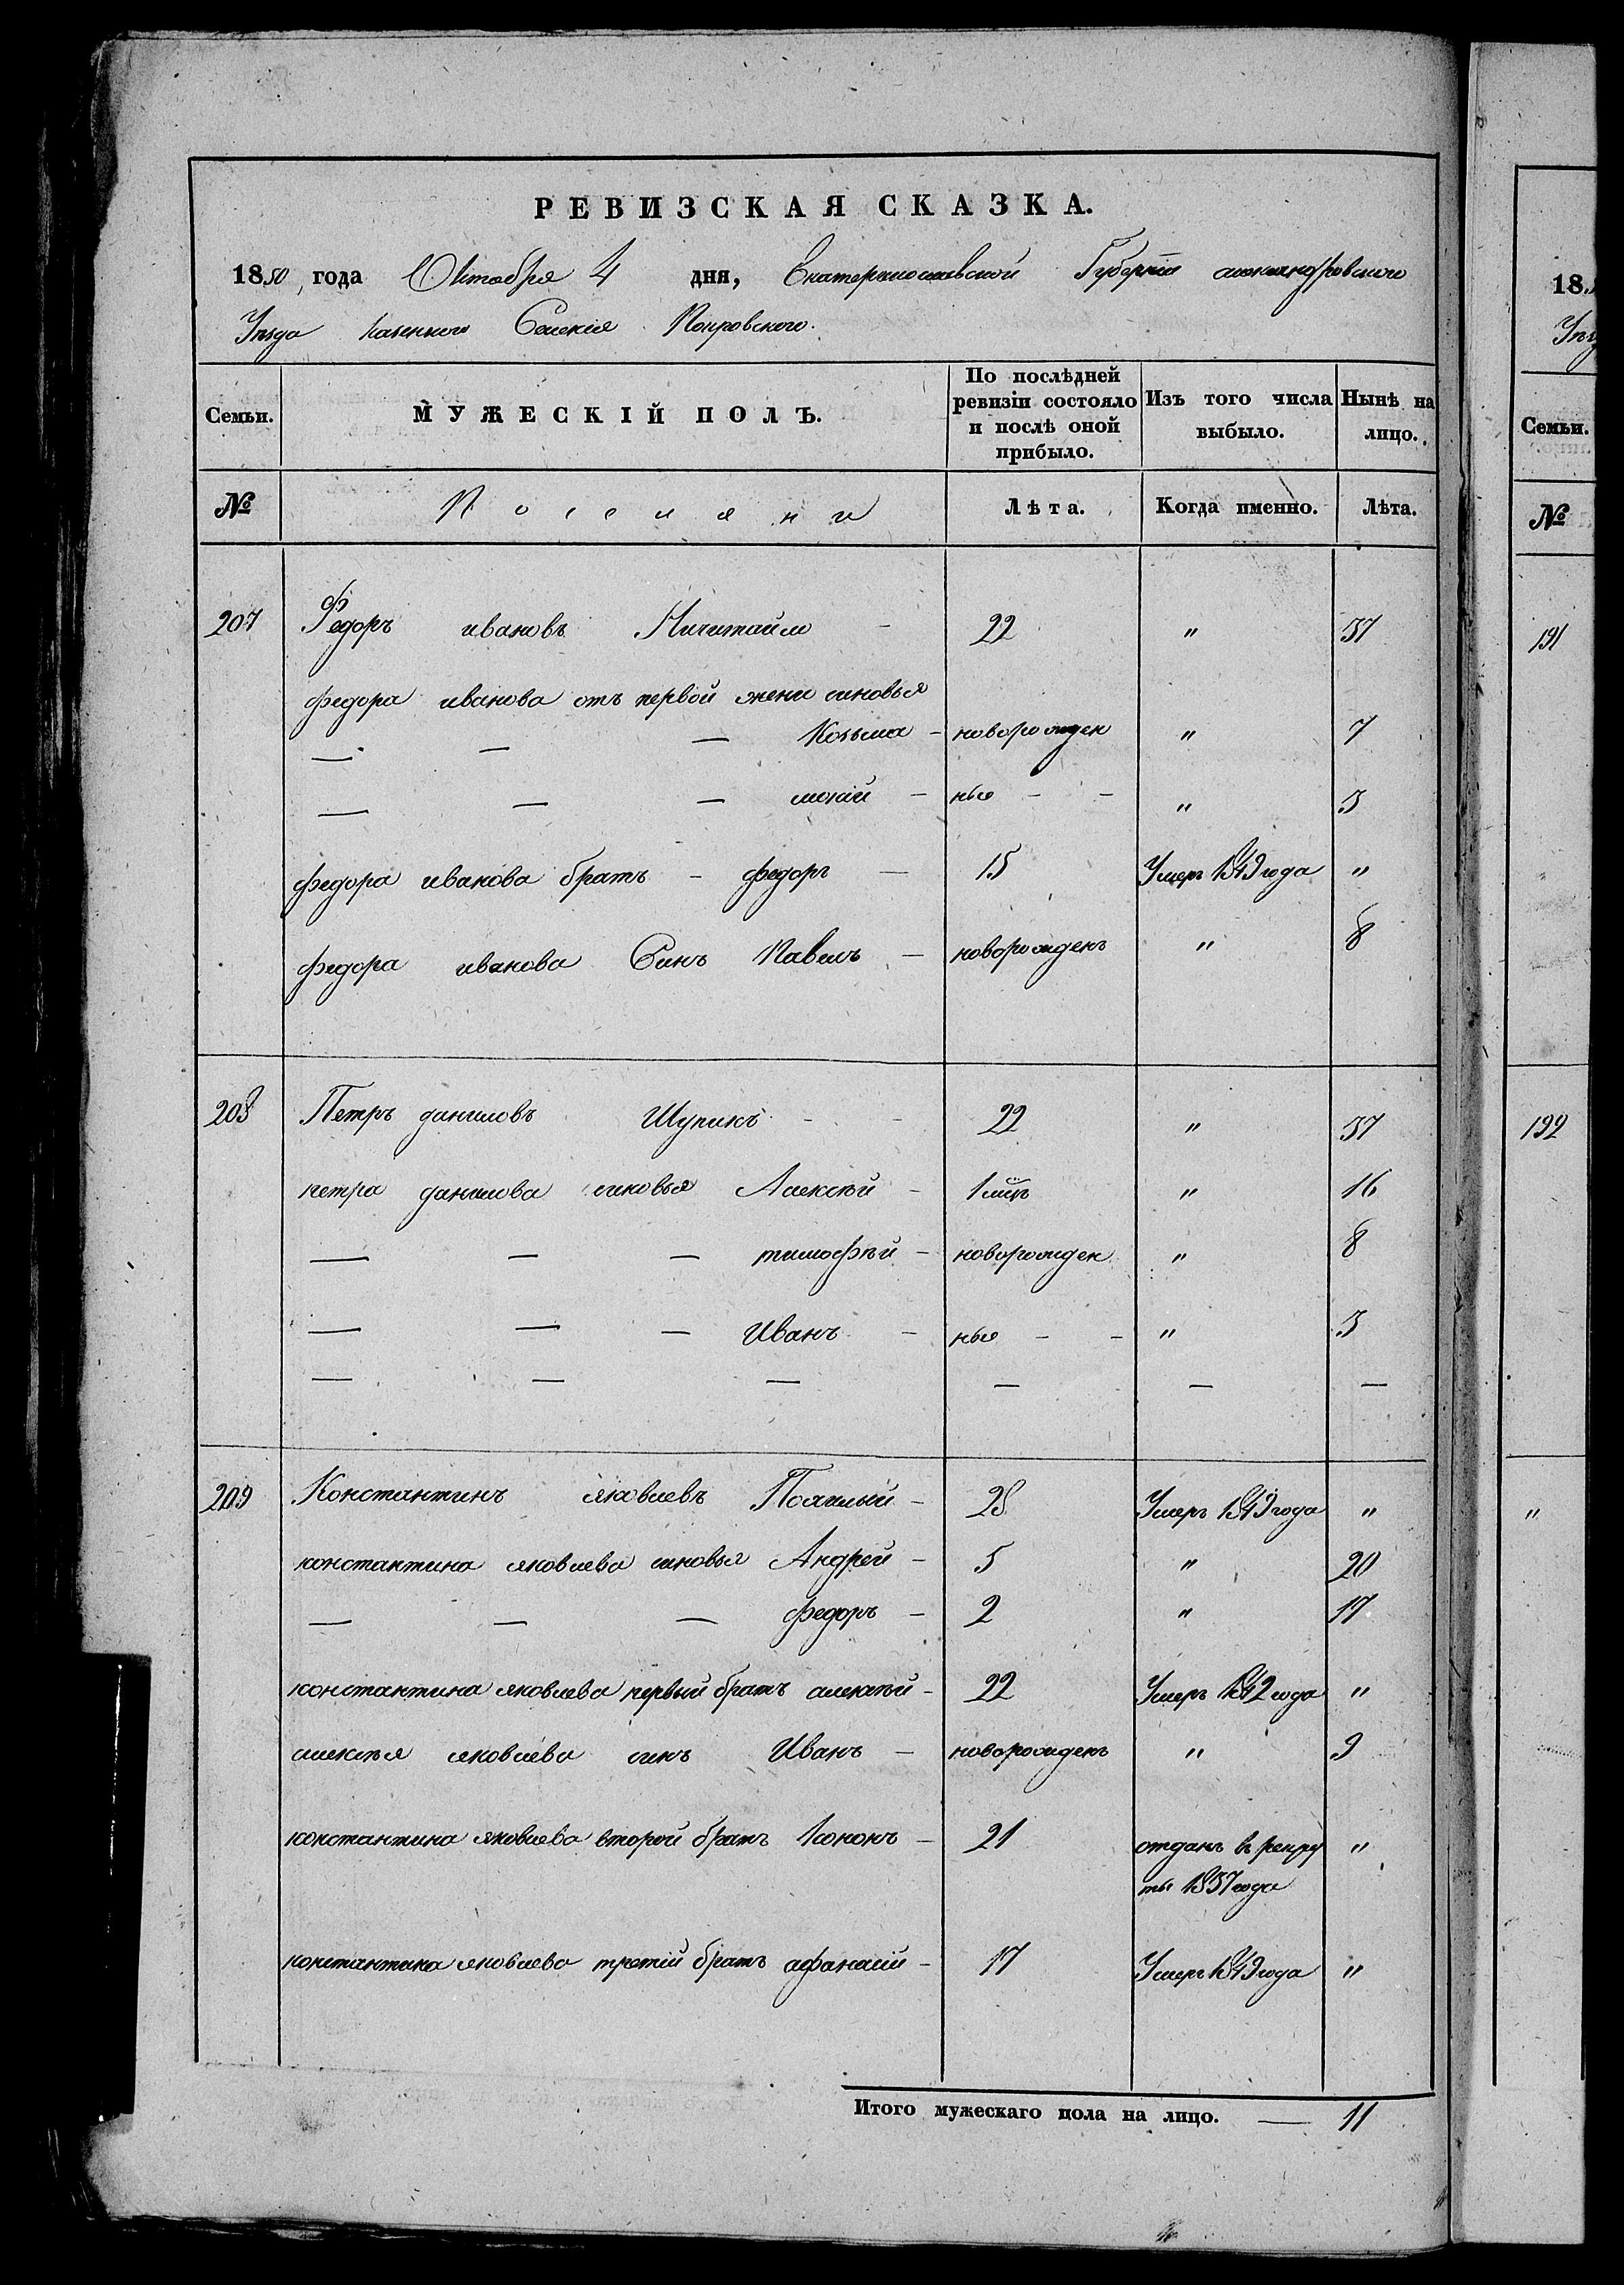 РЕВИЗСКАЯ СКАЗКА.
1850 года Октября 4 дня, Екатеринославской Губернии александровского
Уезда Казенного Селения Покровского.
Семьи. МУЖЕСКІЙ ПОЛЪ. По послѣдней ревизіи состояло и послѣ оной прибыло. Изъ того числа выбыло. Нынѣ на лицо.
№ Поселяни Лѣта. Когда именно. Лѣта.
207 Федоръ ивановъ Ничитайло - 22 " 37
федора иванова отъ первой жени синовья
— — — Козьма - новорожден " 7
— — — мокій - ные - - " 3
федора иванова братъ - федоръ — 15 Умеръ 1849 года "
федора иванова Синъ Павелъ - новорожденъ " 8
208 Петръ даниловъ Шупикъ - - 22 " 37
петра данилова синовья Алексѣй - 1 мцъ " 16
— — — тимофѣй - новорожден " 8
— — — Иванъ - ные - - " 3
— — — — — —
209 Константинъ яковлевъ - 28 Умеръ 1849 года "
константина яковлева синовья Андрей - 5 " 20
— — — федоръ - 2 " 17
константина яковлева первый братъ алексѣй - 22 Умеръ 1842 года "
алексѣя яковлева синъ Иванъ - новорожденъ " 9
константина яковлева второй братъ Кононъ - 21 отданъ в рекру "
ты 1837 года
константина яковлева третій братъ афанасій - 17 Умеръ 1849 года "
Итого мужескаго пола на лицо. — 11
18
Семьи.
№
191
192
"